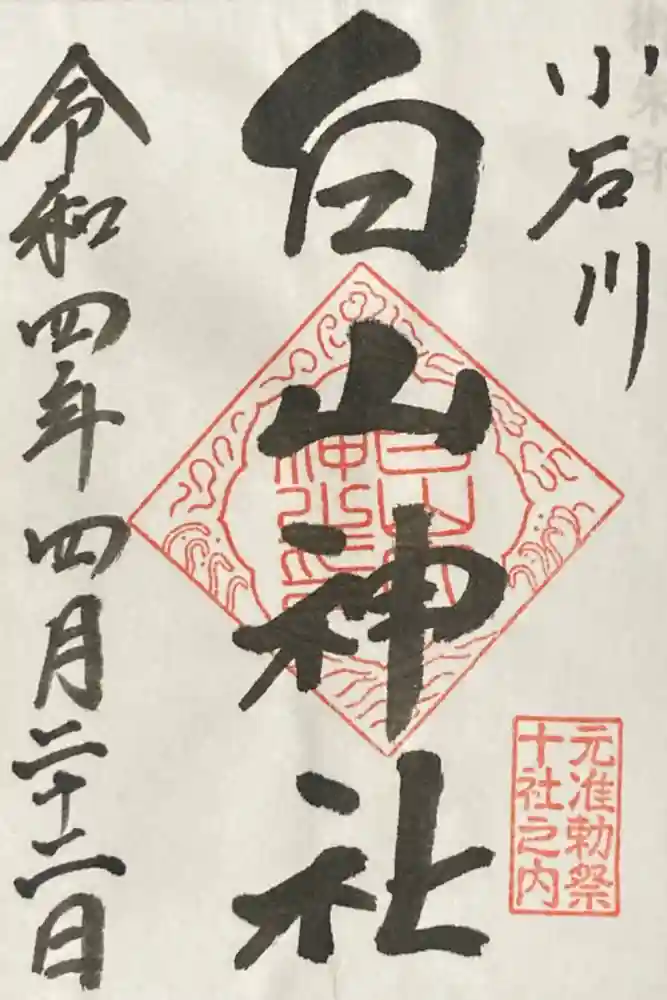 小石川
白山神社
元准勅祭
十社之内
令和四年四月二十二日